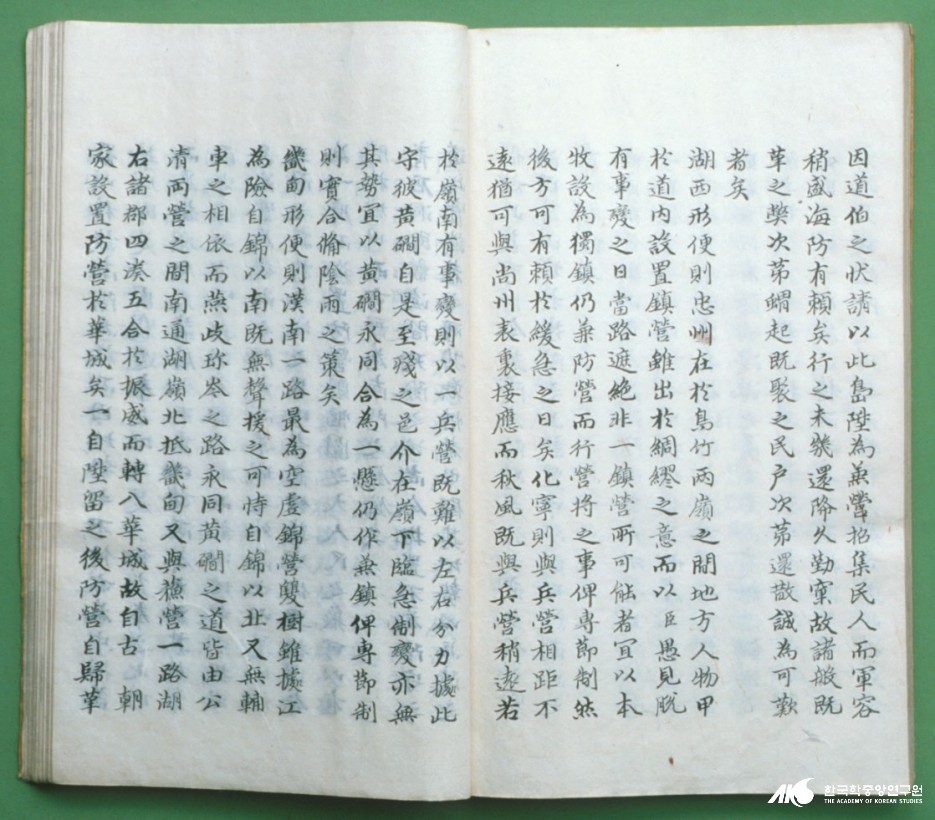 因道伯之狀請以此島陞為兼營招集民人而軍容
稍盛海防有賴矣行之未幾還降久勤窠故諸般既
革之弊次第蝟起既聚之民戶次第還散誠為可歎
者矣
湖西形便則忠州在於鳥竹兩嶺之間地方人物甲
於道內設置鎮營雖出於綢繆之意而以臣愚見脫
有事變之日當路遮絕非一鎮營所可能者宜以本
牧設為獨鎮仍兼防營而行營將之事俾專節制然
後方可有賴於緩急之日矣化寧則與兵營相距不
遠猶可與尚州表裏接應而秋風既與兵營稍遠若
於嶺南有事變則以一兵營既難以左右分力據此
守彼黃磵自是至殘之邑介在嶺下臨急制變亦無
其勢宜以黃磵永同合為一懸仍作兼鎮俾專節制
則實合脩陰雨之策矣
畿甸形便則漢南一路最為空虛錦營雙樹雖據江
為險自錦以南既無聲援之可恃自錦以北又無輔
車之相依而燕歧珍岑之路永同黃磵之道皆由公
清兩營之間南通湖嶺北抵畿甸又與蘓營一路湖
右諸郡四湊五合於振威而轉入華城故自古 朝
家設置防營於華城矣一自陞留之後防營自歸革
한국학중앙연구원
THE ACADEMY OF KOREAN STUDIES